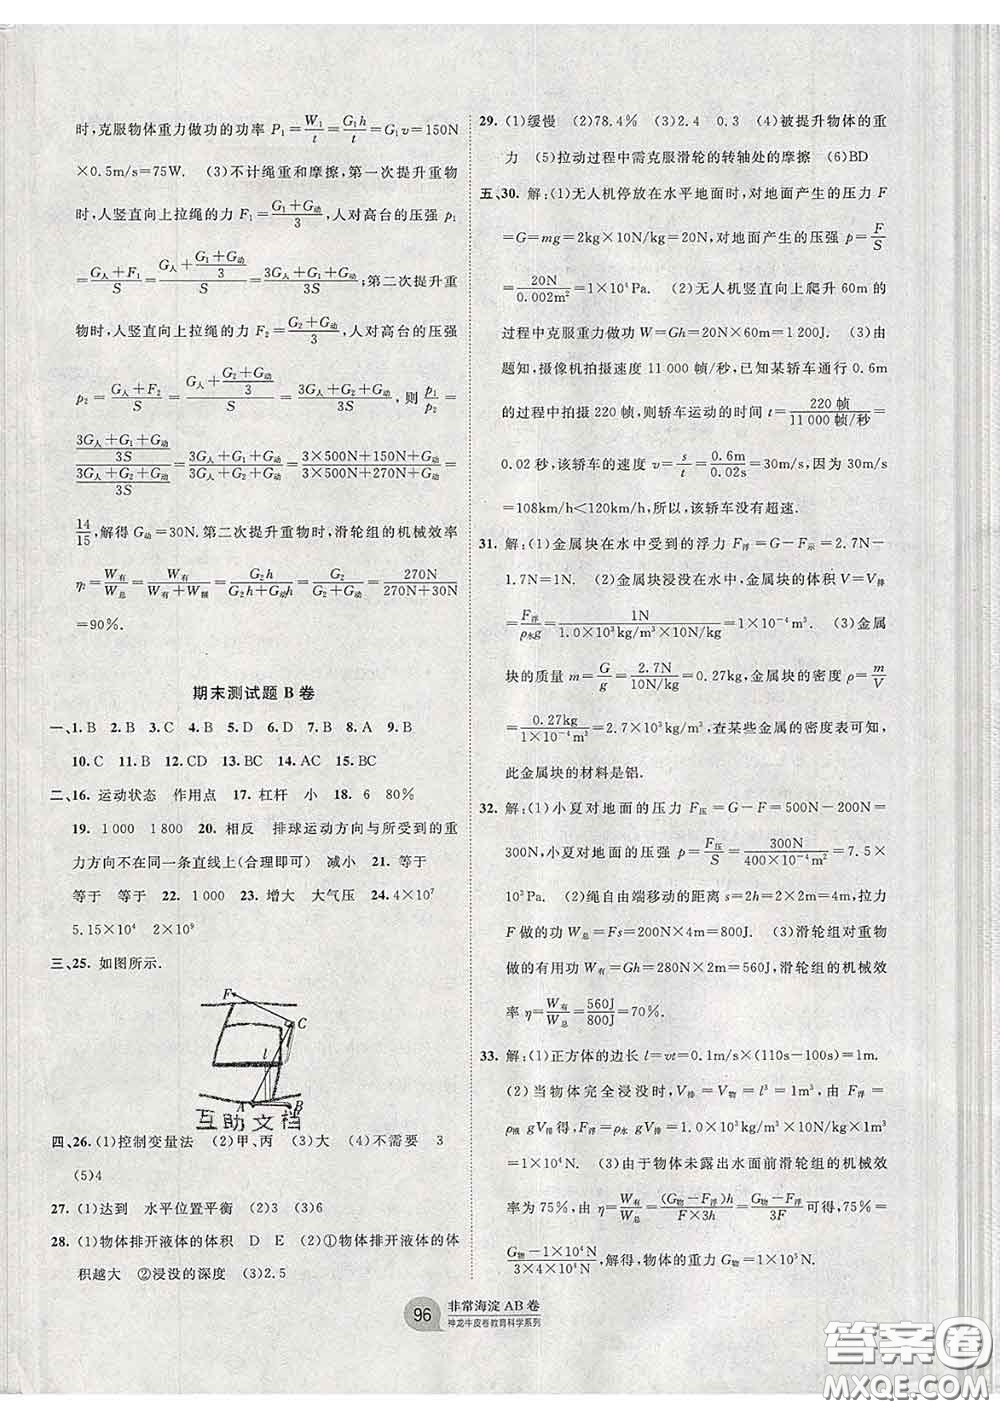 时,克服物体重力做功的功率 P₁=W₁/t=G₁h/t=G₁v=150N
×0.5m/s=75W. (3)不计绳重和摩擦,第一次提升重物
时,人竖直向上拉绳的力 F₁=(G₁+G动)/3,人对高台的压强 p₁
=(G人+F₁)/S=(G人+(G₁+G动)/3)/S=(3G人+G₁+G动)/3S;第二次提升重
物时,人竖直向上拉绳的力 F₂=(G₂+G动)/3,人对高台的压强
p₂=(G人+F₂)/S=(G人+(G₂+G动)/3)/S=(3G人+G₂+G动)/3S,则 p₁/p₂=
((3G人+G₁+G动)/3S)/((3G人+G₂+G动)/3S)=(3G人+G₁+G动)/(3G人+G₂+G动)=(3×500N+150N+G动)/(3×500N+270N+G动)=
14/15,解得 G动=30N.第二次提升重物时,滑轮组的机械效率
η₂=W有/W总=W有/(W有+W额)=G₂h/(G₂h+G动h)=G₂/(G₂+G动)=270N/(270N+30N)
=90%.
期末测试题 B 卷
一、1.B 2.B 3.C 4.B 5.D 6.D 7.B 8.A 9.B
10.C 11.B 12.CD 13.BC 14.AC 15.BC
二、16. 运动状态 作用点 17. 杠杆 小 18. 6 80%
19. 1 000 1 800 20. 相反 排球运动方向与所受到的重
力方向不在同一条直线上(合理即可) 减小 21. 等于
等于 等于 22. 1 000 23. 增大 大气压 24. 4×10⁷
5.15×10⁴ 2×10⁹
三、25. 如图所示.
F
C
l
A B
互助文档
四、26. (1)控制变量法 (2)甲、丙 (3)大 (4)不需要 3
(5)4
27. (1)达到 水平位置平衡 (2)3 (3)6
28. (1)物体排开液体的体积 D E (2)①物体排开液体的体
积越大 ②浸没的深度 (3)2.5
29. (1)缓慢 (2)78.4% (3)2.4 0.3 (4)被提升物体的重
力 (5)拉动过程中需克服滑轮的转轴处的摩擦 (6)BD
五、30. 解:(1)无人机停放在水平地面时,对地面产生的压力 F
=G=mg=2kg×10N/kg=20N,对地面产生的压强 p=F/S
=20N/0.002m²=1×10⁴Pa. (2)无人机竖直向上爬升 60m 的
过程中克服重力做功 W=Gh=20N×60m=1 200J. (3)由
题知,摄像机拍摄速度 11 000 帧/秒,已知某轿车通行 0.6m
的过程中拍摄 220 帧,则轿车运动的时间 t=220 帧/11 000 帧/秒=
0.02 秒,该轿车的速度 v=s/t=0.6m/0.02s=30m/s,因为 30m/s
=108km/h<120km/h,所以,该轿车没有超速.
31. 解:(1)金属块在水中受到的浮力 F浮=G-F示=2.7N-
1.7N=1N. (2)金属块浸没在水中,金属块的体积 V=V排
=F浮/ρ水g=1N/(1.0×10³kg/m³×10N/kg)=1×10⁻⁴m³. (3)金属
块的质量 m=G/g=2.7N/10N/kg=0.27kg,金属块的密度 ρ=m/V
=0.27kg/1×10⁻⁴m³=2.7×10³kg/m³,查某些金属的密度表可知,
此金属块的材料是铝.
32. 解:(1)小夏对地面的压力 F压=G-F=500N-200N=
300N,小夏对地面的压强 p=F压/S=300N/400×10⁻⁴m²=7.5×
10³Pa. (2)绳自由端移动的距离 s=2h=2×2m=4m,拉力
F 做的功 W总=Fs=200N×4m=800J. (3)滑轮组对重物
做的有用功 W有=Gh=280N×2m=560J,滑轮组的机械效
率 η=W有/W总=560J/800J=70%.
33. 解:(1)正方体的边长 l=vt=0.1m/s×(110s-100s)=1m.
(2)当物体完全浸没时,V排=V物=l³=1m³,由 F浮=
ρ液gV排得,F浮=ρ水gV排=1.0×10³kg/m³×10N/kg×1m³
=1×10⁴N. (3)由于物体未露出水面前滑轮组的机械效
率为 75%,由 η=W有/W总=(G物-F浮)h/F×3h=(G物-F浮)/3F 可得,75%=
(G物-1×10⁴N)/(3×4×10⁴N),解得,物体的重力 G物=1×10⁵N.
96 非常海淀 AB 卷
神龙牛皮卷教育科学系列
答案卷
MXQE.COM